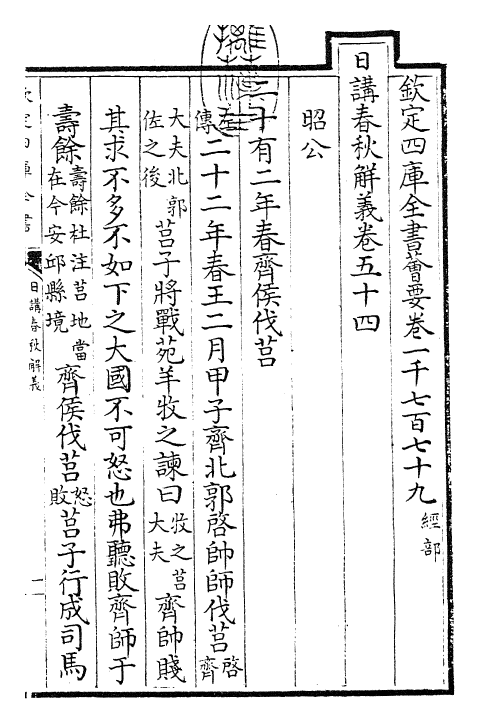 欽定四庫全書薈要卷一千七百七十九 經部
日講春秋解義卷五十四
昭公
二十有二年春齊侯伐莒
左傳二十二年春王二月甲子齊北郭啓帥師伐莒 啓齊
大夫北郭佐之後 莒子將戰苑羊牧之諫曰 牧之莒大夫 齊帥賤
其求不多不如下之大國不可怒也弗聽敗齊師于
壽餘 壽餘杜注莒地當在今安邱縣境 齊侯伐莒 怒敗 莒子行成司馬
日講春秋解義